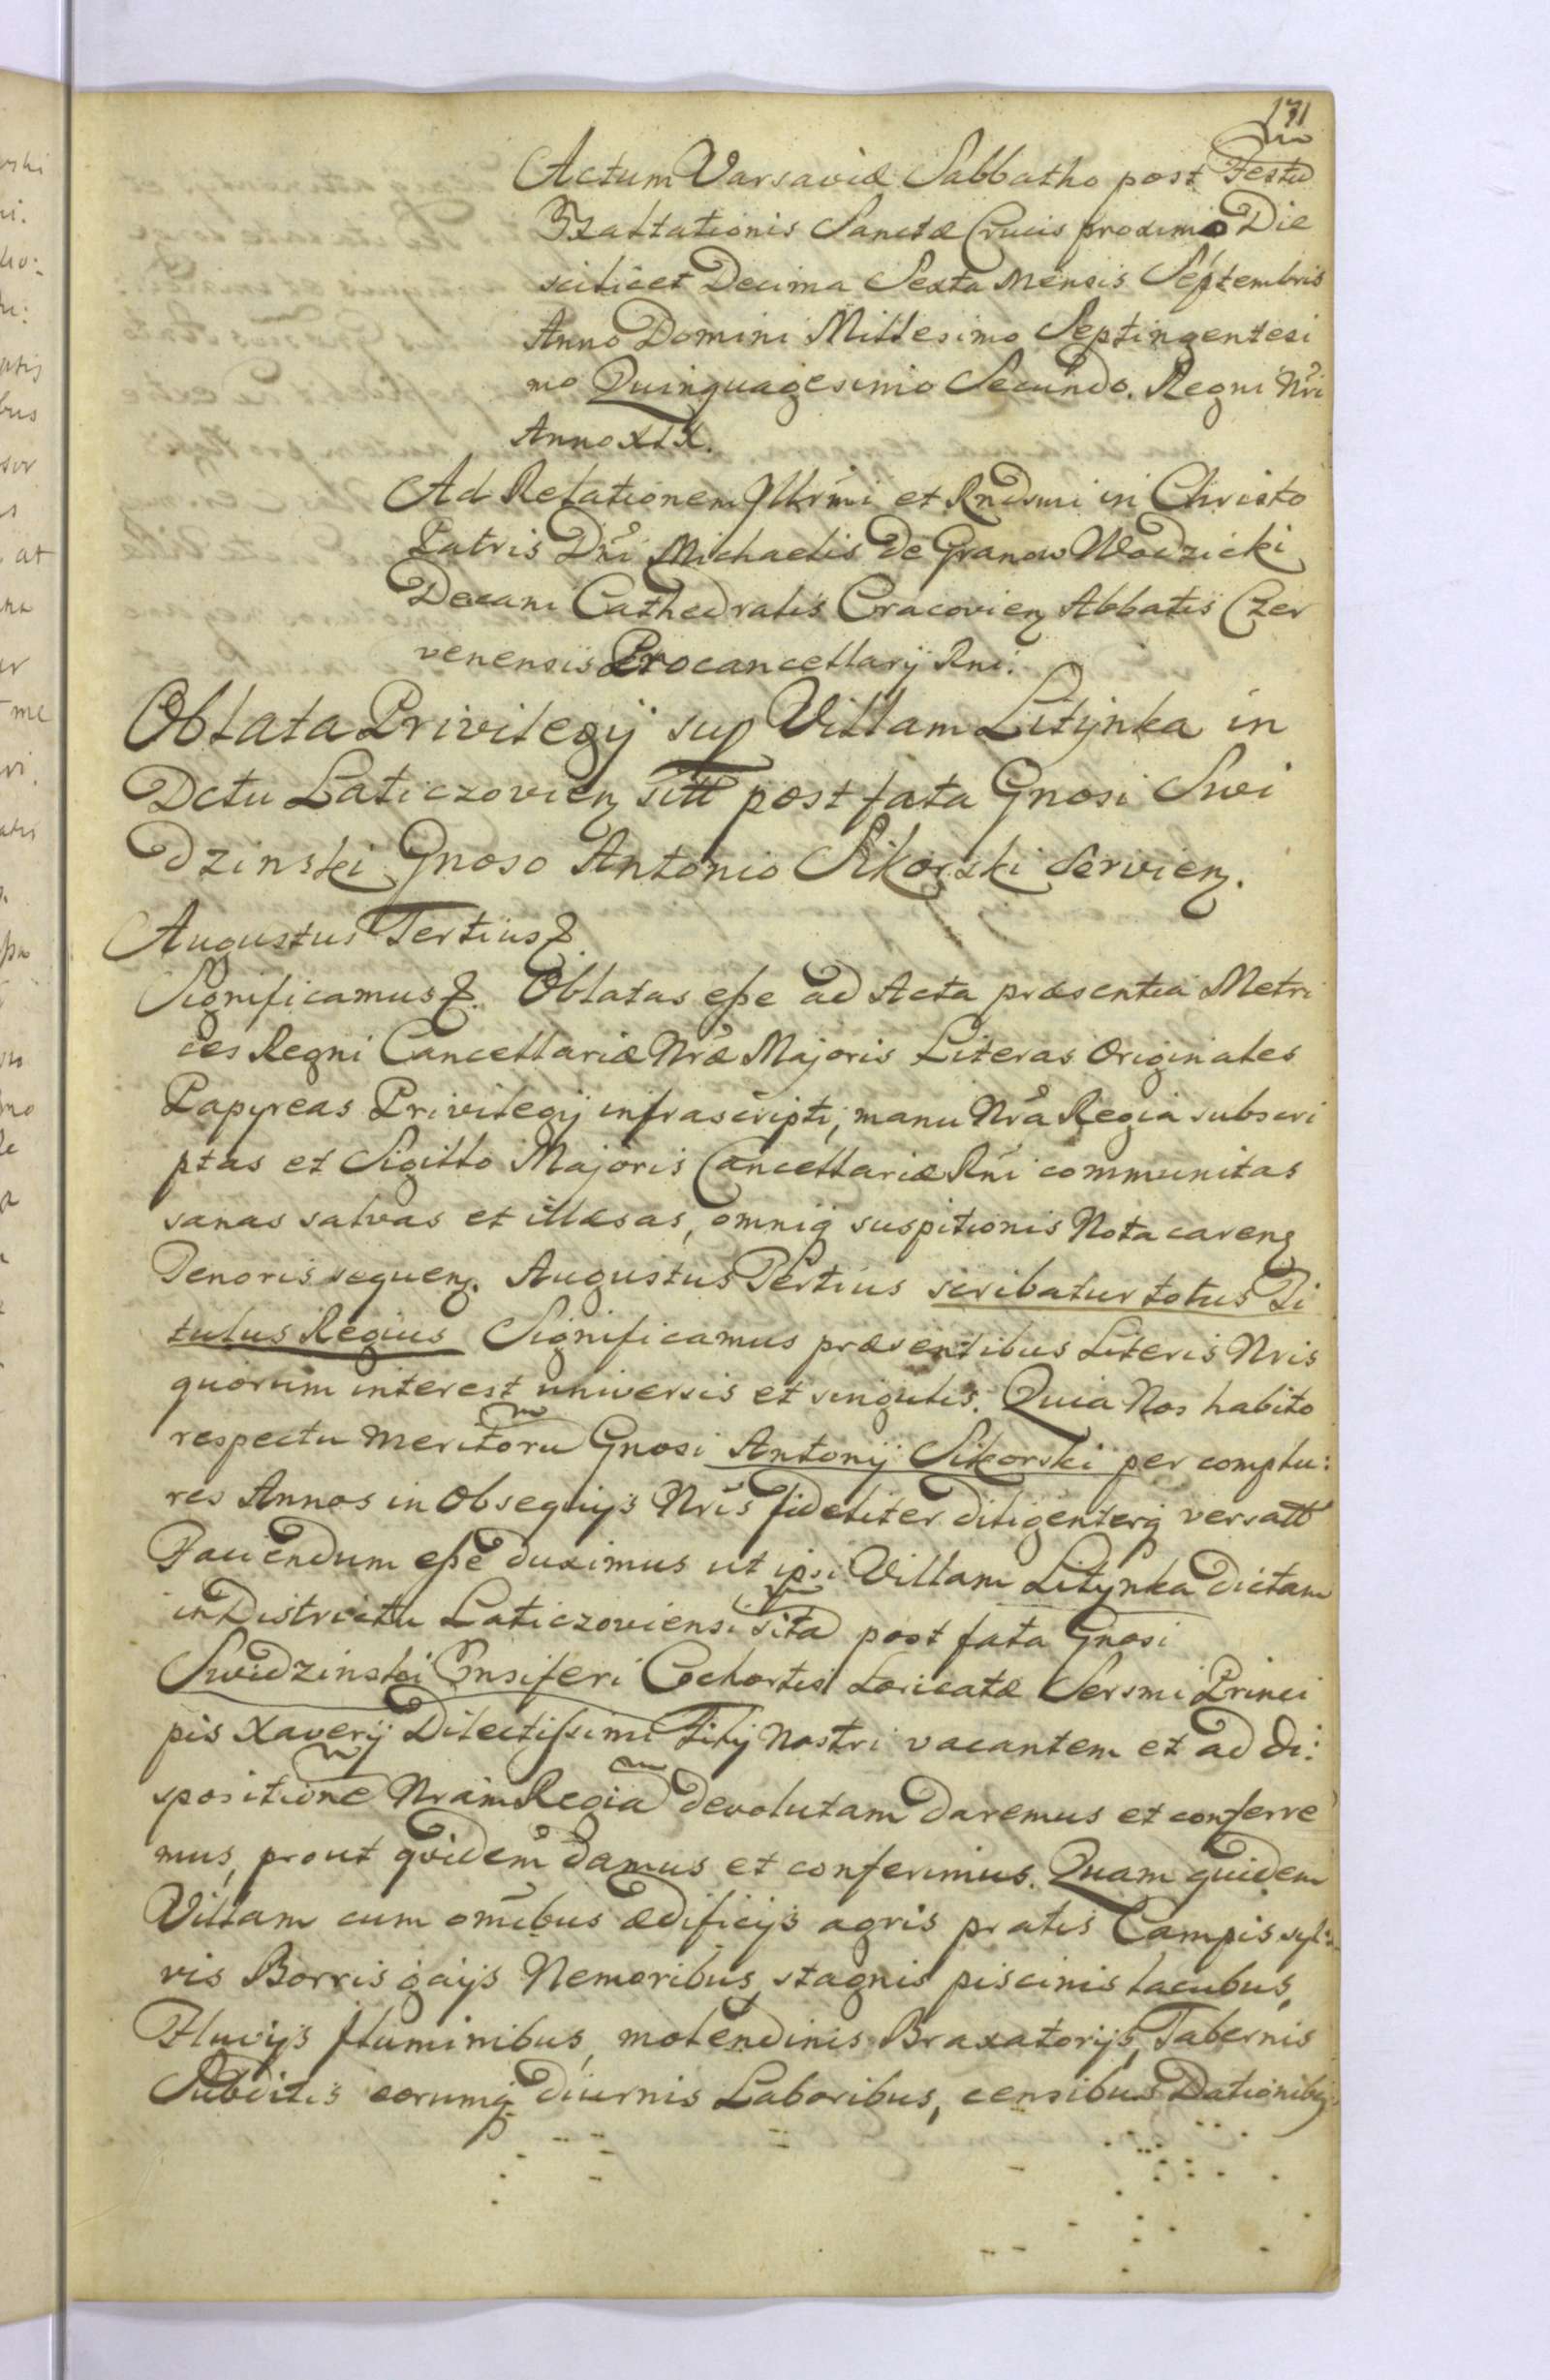 171
Actum Varsaviæ Sabbatho post Festũ
Exaltationis Sanctæ Crucis proximo Die
scilicet Decima Sexta Mensis Septembris
Anno Domini Millesimo Septingentesi
mo Quinquagesimo Secundo. Regni Nri
Anno XIX.
Ad Relationem Illrmi et Rndsmi in Christo
Patris Dni Michaelis de Granow Wodzicki
Decani Cathedralis Cracovien Abbatis Czer
venensis Procancellarij Rni.
Oblata Privilegij sup Villam Litynka in
Dctu Laticzovien sitt post fata Gnosi Swi
dzinski Gnoso Antonio Sikorski servien.
Augustus Tertius &.
Significamus &. Oblatas eße ad Acta præsentia Metri
ces Regni Cancellariæ Nræ Majoris Literas Originales
Papyreas Privilegij infrascripti, manu Nra Regia subscri
ptas et Sigillo Majoris Cancellariæ Rni communitas
sanas salvas et illæsas, omniq suspitionis Nota caren
Tenoris sequen. Augustus Tertius scribatur totus Ti
tulus Regius Significamus præsentibus Literis Nris
quorum interest universis et singulis. Quia Nos habito
respectu meritorũ Gnosi Antonij Sikorski per complu:
res Annos in Obsequijs Nris fideliter diligenterq versatt
Faciendum eße duximus ut ipsi Villam Litynka dictam
in Districtu Laticzoviensi sitã post fata Gnosi
Swidzinski Ensiferi Cohortis Loricatæ Sersmi Princi
pis Xaverij Dilectißimi Filij Nostri vacantem et ad di:
spositionẽ Nram Regiã devolutam daremus et conferre
mus, prout qvidem damus et conferimus. Quam quidem
Villam cum omibus ædificijs agris pratis Campis syl:
vis Borris gaijs Nemoribus, stagnis piscinis lacubus,
Fluvijs fluminibus, molendinis Braxatorijs, Tabernis
Subditis eorumq diurnis Laboribus, censibus Dationibq